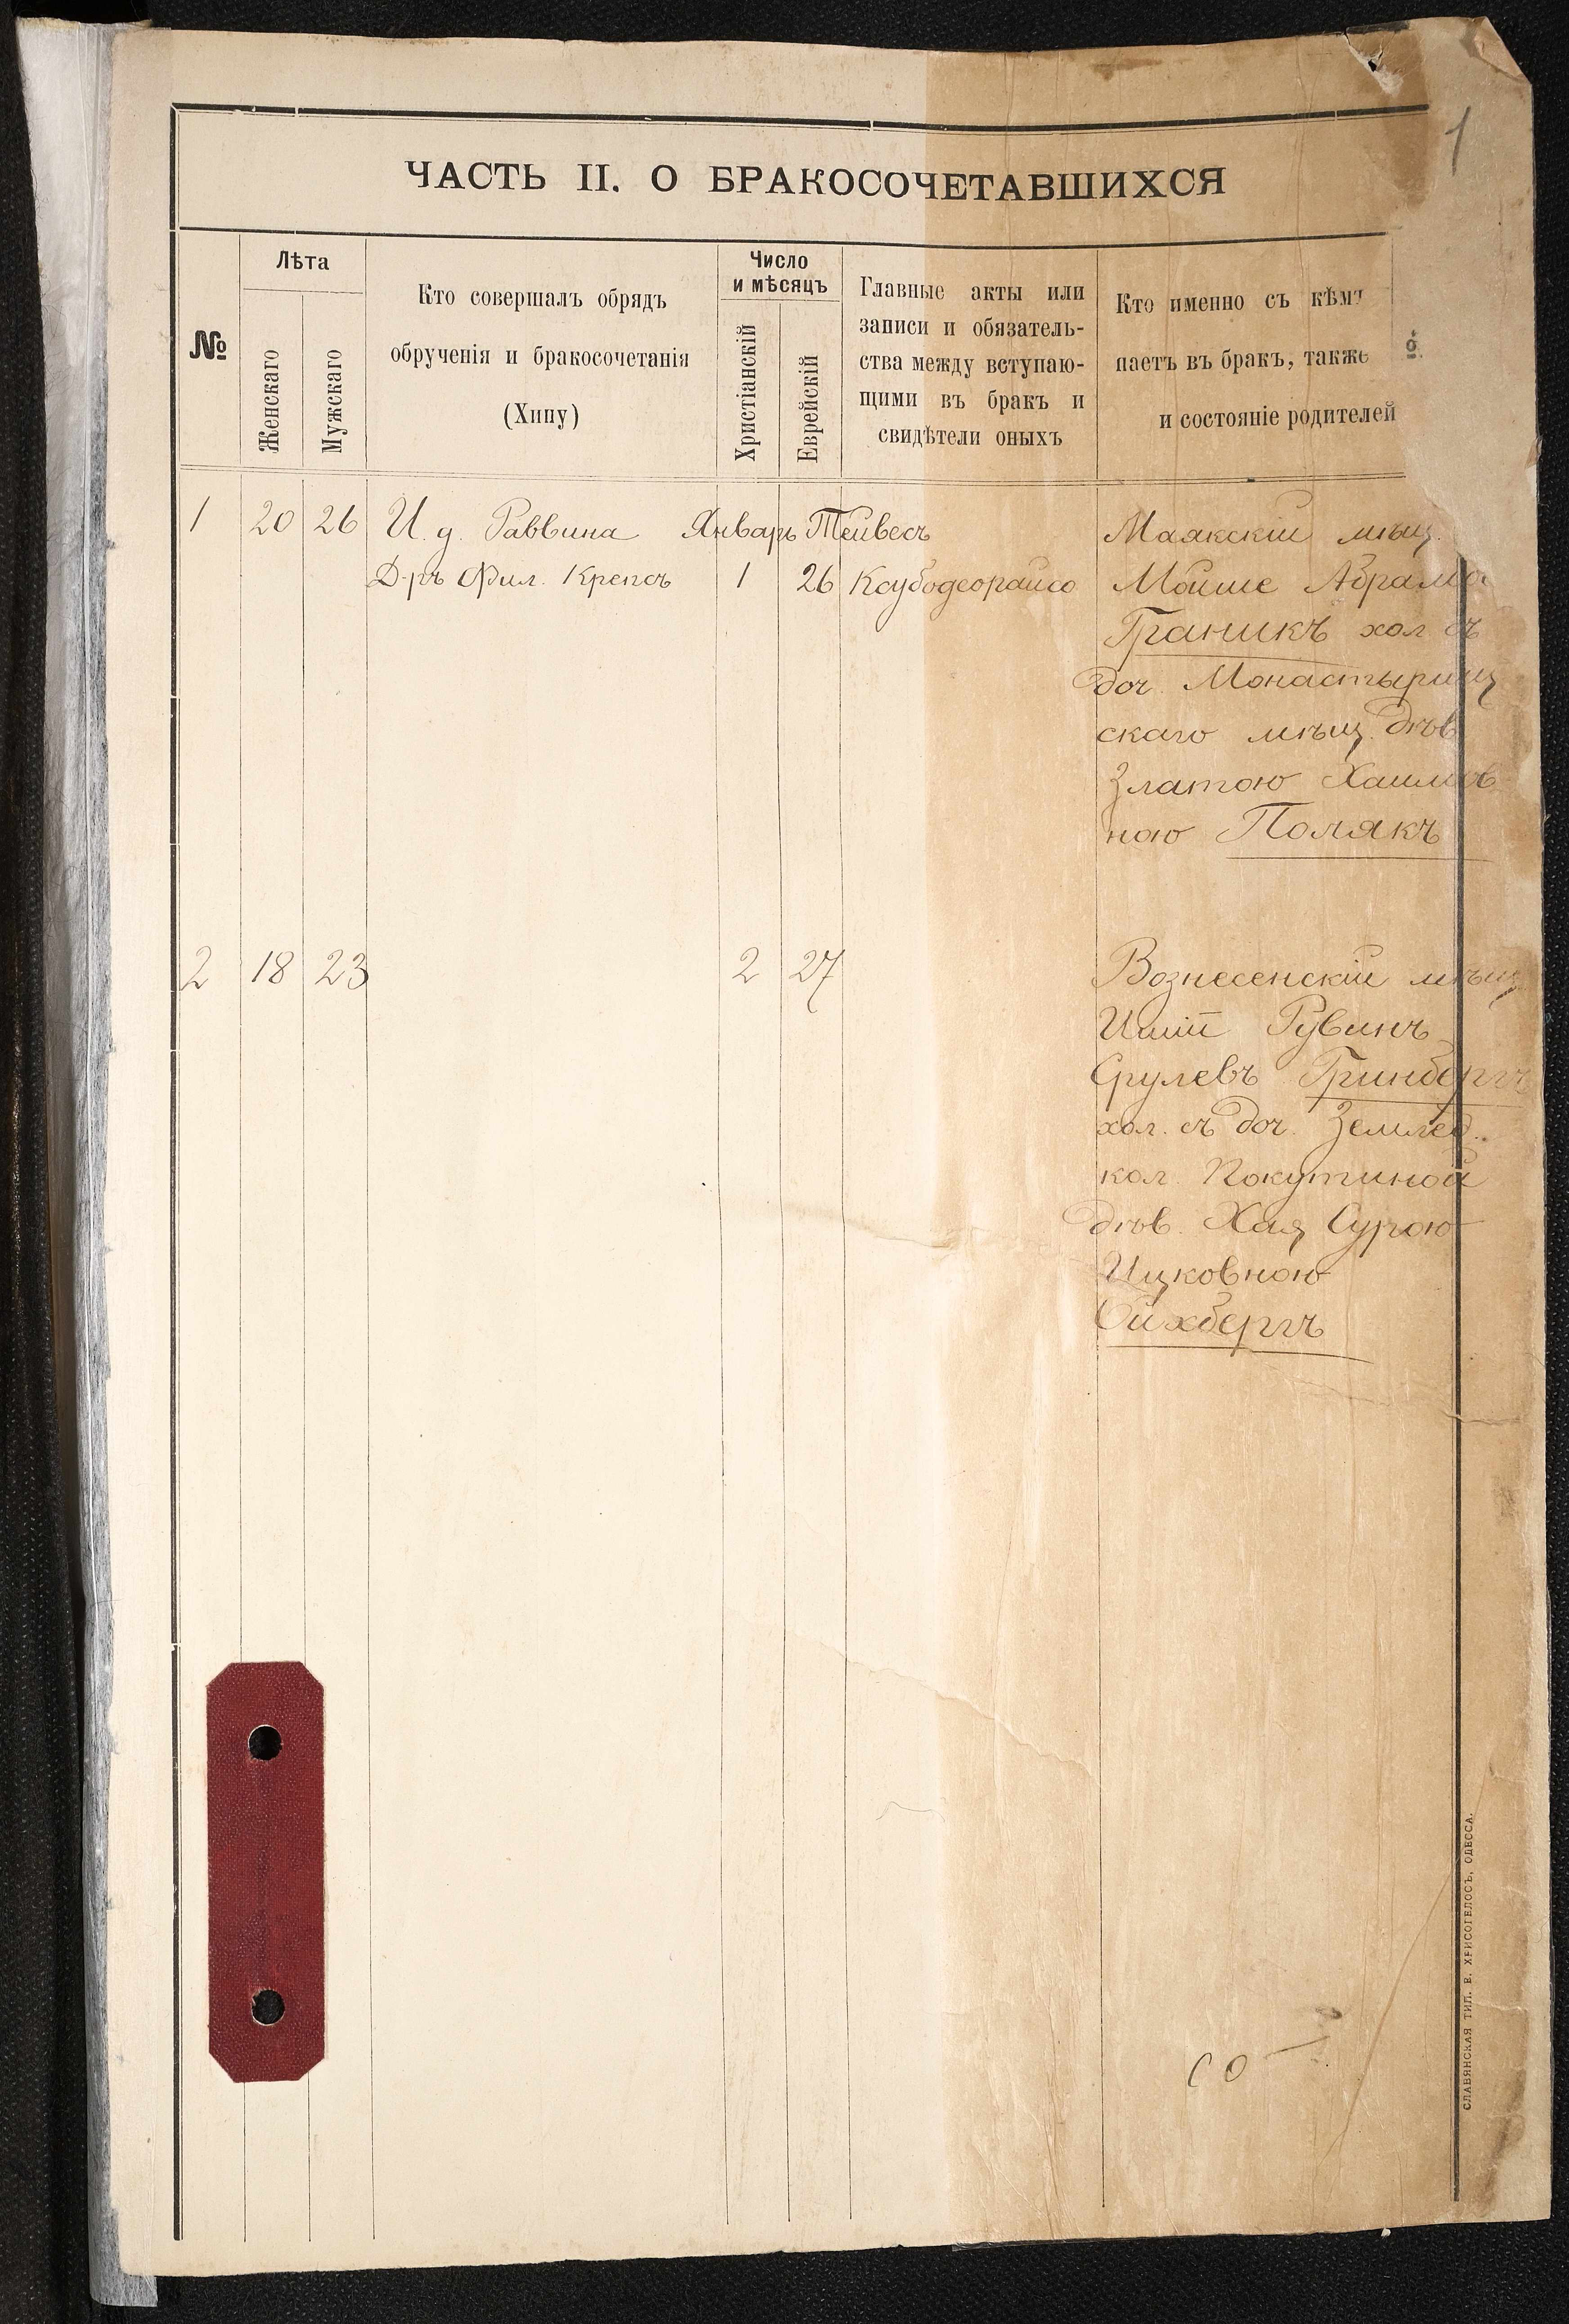 1
ЧАСТЬ II. О БРАКОСОЧЕТАВШИХСЯ
№
Лѣта
Женскаго
Мужскаго
Кто совершалъ обрядъ
обрученія и бракосочетанія
(Хипу)
Число
и мѣсяцъ
Христіанскій
Еврейскій
Главные акты или
записи и обязатель-
ства между вступаю-
щими въ бракъ и
свидѣтели оныхъ
Кто именно съ кѣмъ
паетъ въ бракъ, также
и состояніе родителей
1 20 26 И. д. Раввина Январь Тейвесъ Маякскій мѣщ.
Д-ръ Фил. Крепсъ 1 26 Ксубодеорайсо Мойше Абрамов
Граникъ хол съ
доч. Монастырищ
скаго мѣщ. дѣв
Златою Хаимов
ною Полякъ
2 18 23 2 27 Вознесенскій мѣщ
Рувинъ
Срулевъ Гринбергъ
хол. съ доч. Землед.
кол. Покутиной
дѣв. Хая Сурою
Ицковною
Ойхбергъ
СЛАВЯНСКАЯ ТИП. Е. ХРИСОГЕЛОСЪ, ОДЕССА.